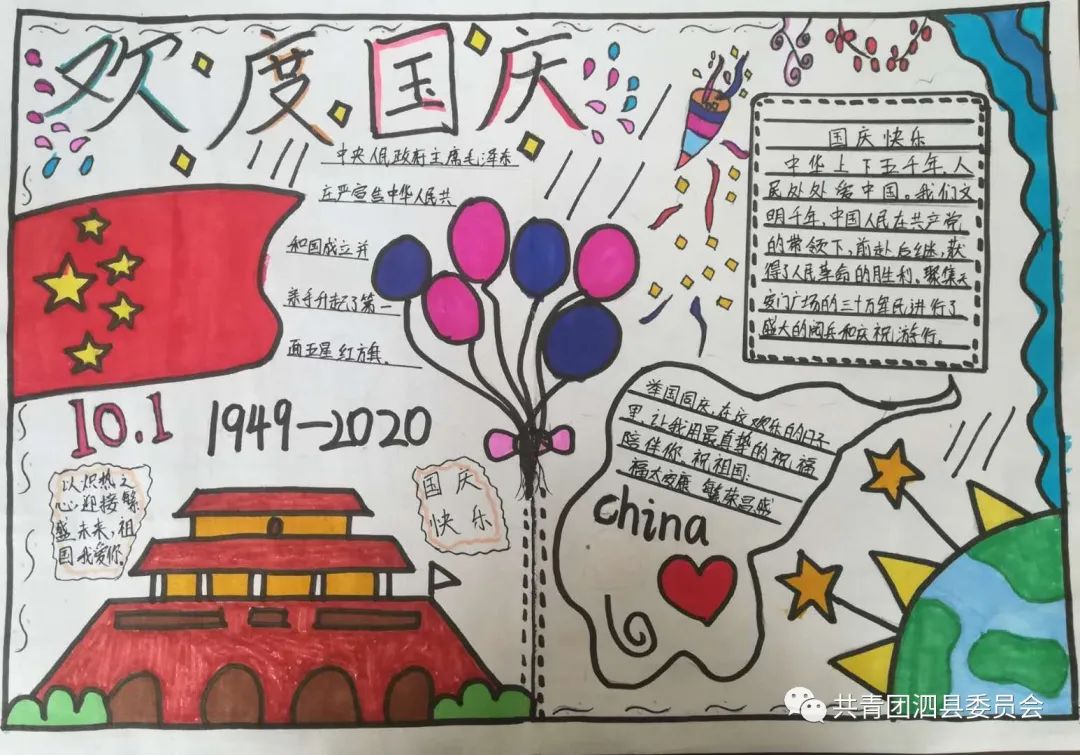 欢度国庆
中央人民政府主席毛泽东
庄严宣告中华人民共
和国成立并
亲手升起了第一
面五星红旗.
国庆快乐
中华上下五千年,人
民处处爱中国。我们文
明千年,中国人民在共产党
的带领下,前赴后继,获
得了人民革命的胜利。聚集天
安门广场的三十万军民进行了
盛大的阅兵和庆祝游行。
10.1
1949-2020
以炽热之
心,迎接繁
盛未来,祖
国我爱你.
国庆
快乐
举国同庆,在这欢乐的日子
里,让我用最真挚的祝福
陪伴你,祝祖国:
福太安康 繁荣昌盛
china
共青团泗县委员会